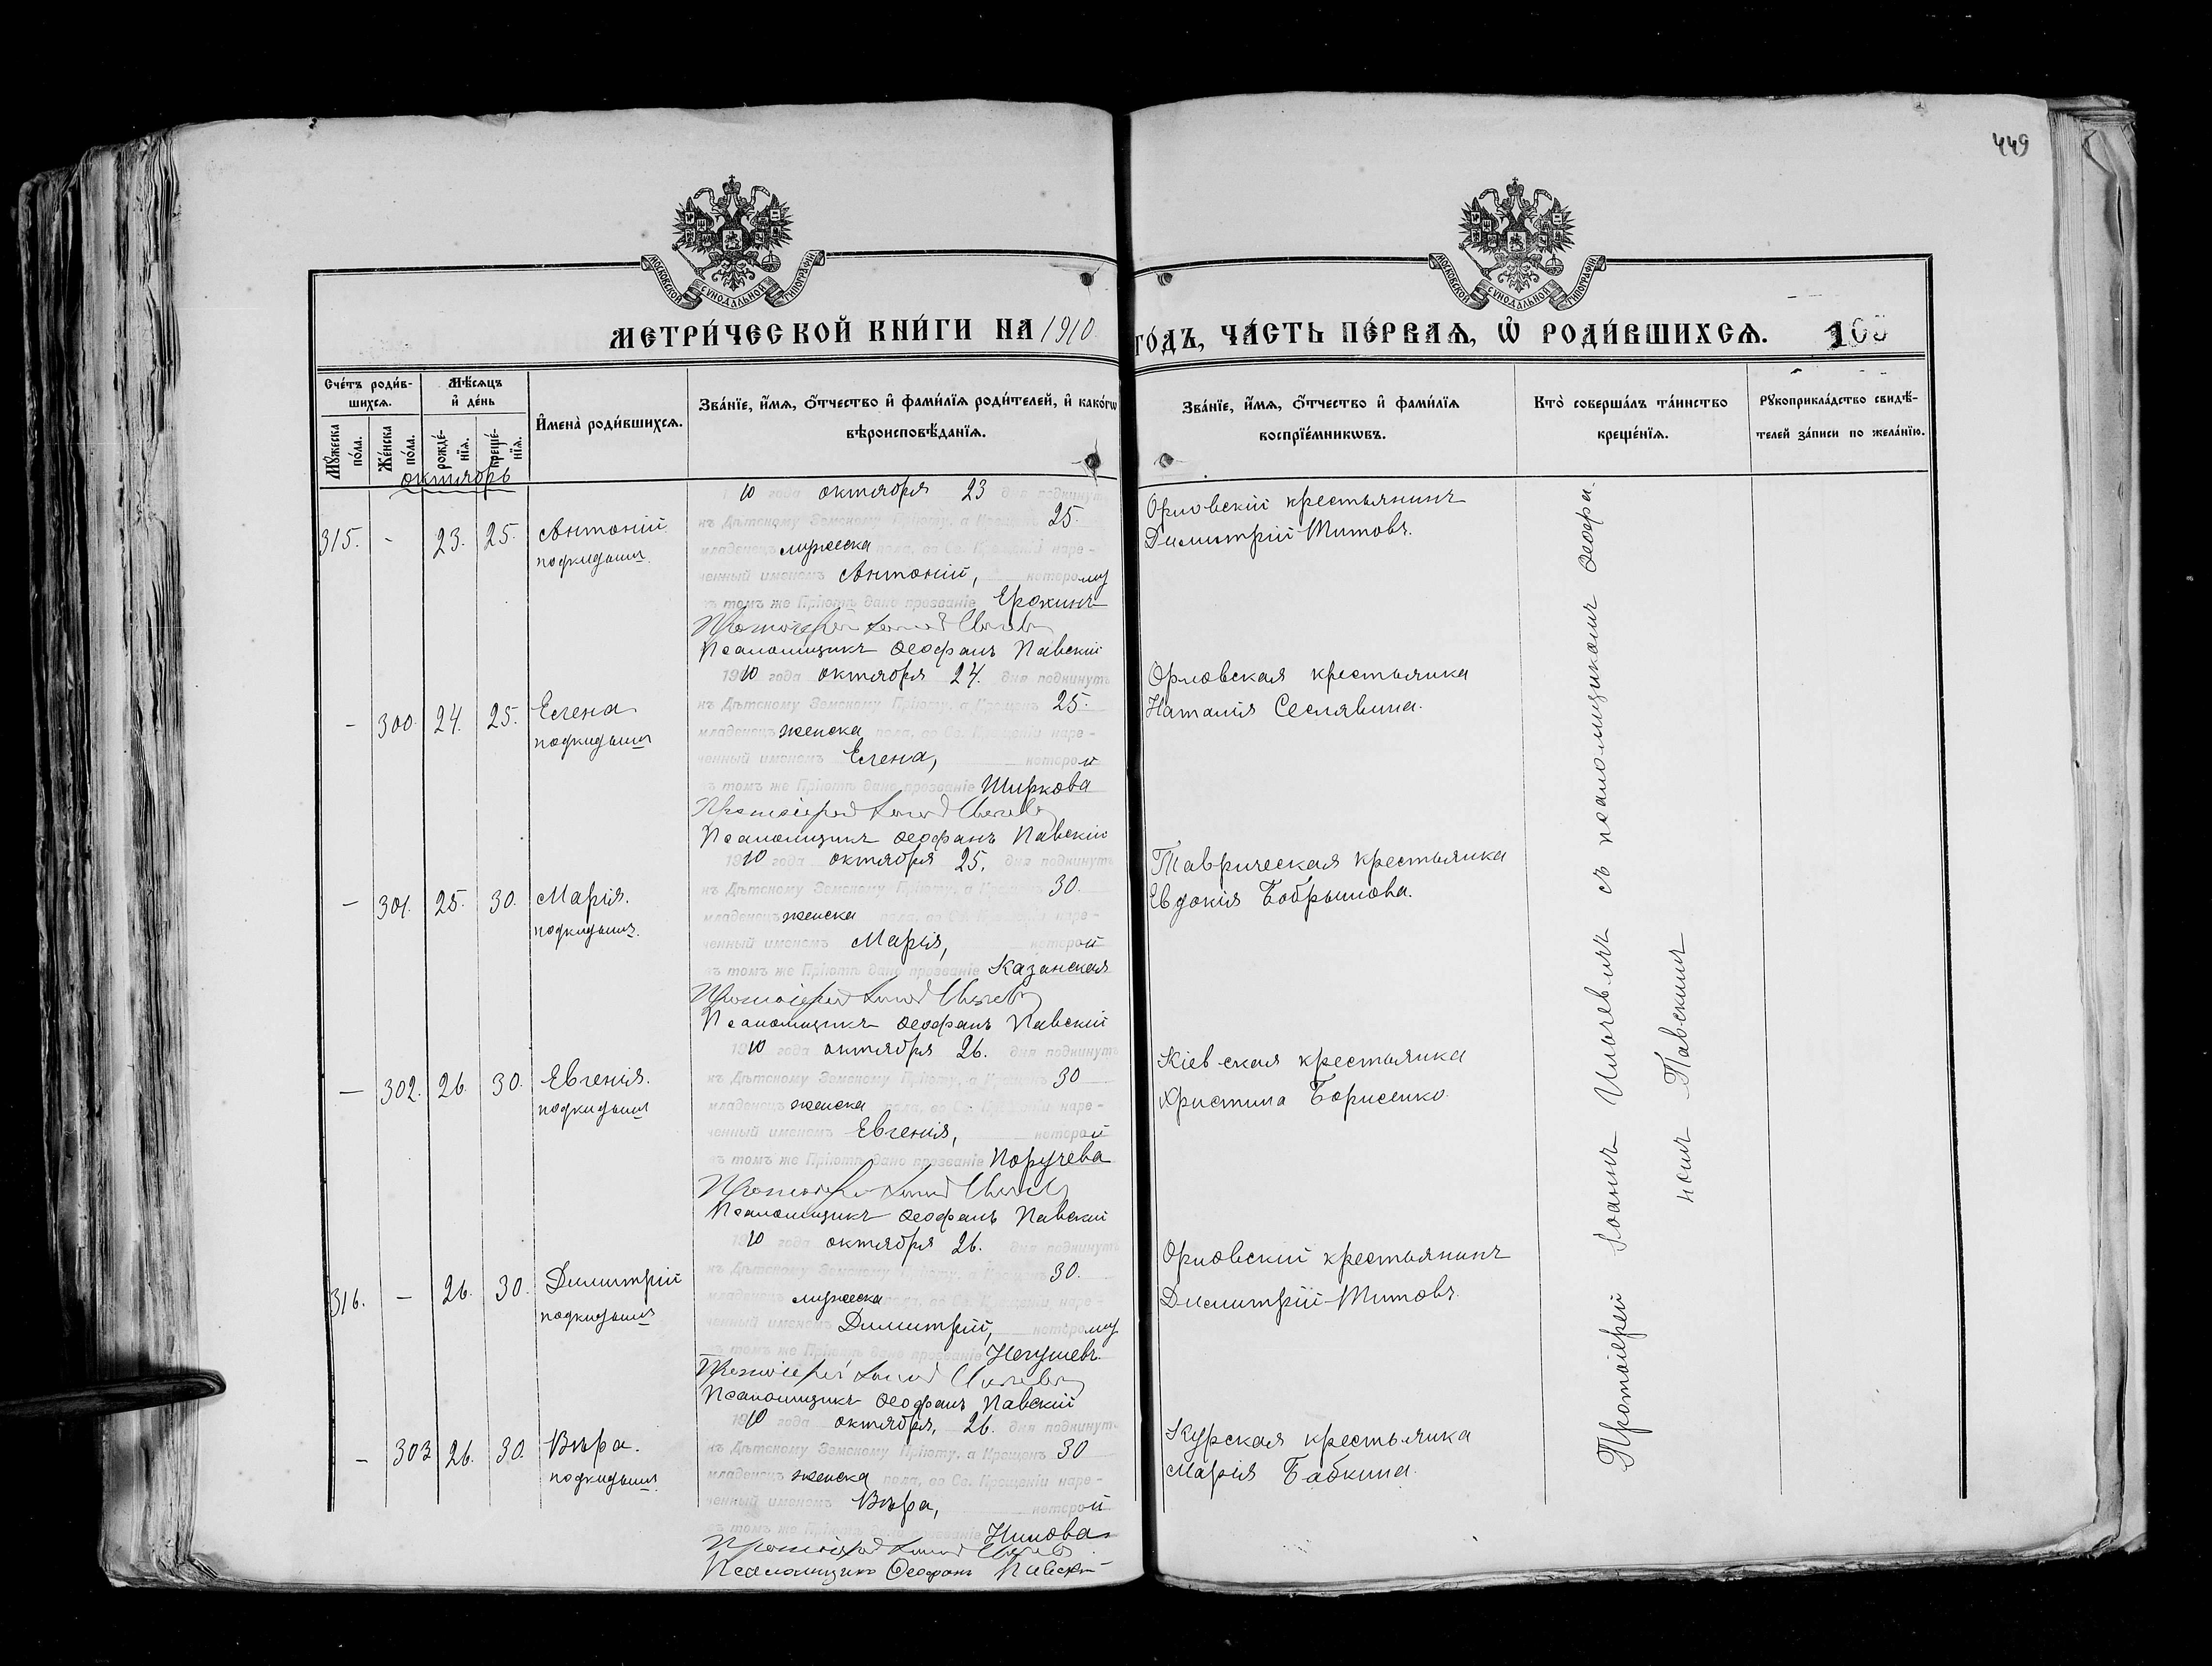 449
МОСКОВСКОЙ СУНОДАЛЬНОЙ ТИПОГРАФІИ
МОСКОВСКОЙ СУНОДАЛЬНОЙ ТИПОГРАФІИ
МЕТРИ́ЧЕСКОЙ КНИ́ГИ НА 1910
ГО́ДЪ, ЧА́СТЬ ПЕ́РВАѦ, Ѽ РОДИ́ВШИХСѦ.
Сче́тъ роди́в-
шихсѧ.
Мꙋ́жеска
по́ла.
Же́нска
по́ла.
Мѣ́сѧцъ
и҆ де́нь
рожде́-
нїѧ.
креще́-
нїѧ.
И҆мена̀ роди́вшихсѧ.
Зва́нїе, и҆́мѧ, ѻ҆́тчество и҆ фами́лїѧ роди́телей, и҆ како́гѡ
вѣроисповѣ́данїѧ.
Зва́нїе, и҆́мѧ, ѻ҆́тчество и҆ фами́лїѧ
воспрїе́мникѡвъ.
Кто̀ соверша́лъ та́инство
креще́нїѧ.
Рꙋкоприкла́дство свидѣ́-
телей за́писи по жела́нїю.
октябрь
315. - 23. 25. Антоній
подкидышъ.
10 года октября 23 дня подкинутъ
къ Дѣтскому Земскому Пріюту, а Крещенъ 25.
младенецъ мужеска пола, во Св. Крещеніи наре-
ченный именемъ Антоній, которому
въ томъ же Пріютѣ дано прозваніе Ерокинъ
Протоіерей Іоаннъ
Псаломщикъ Ѳеофанъ Павскій
Орловскій крестьянинъ
Димитрій Титовъ.
- 300. 24. 25. Елена
подкидышъ
1910 года октября 24. дня подкинутъ
къ Дѣтскому Земскому Пріюту, а Крещенъ 25.
младенецъ женска пола, во Св. Крещеніи наре-
ченный именемъ Елена, которой
въ томъ же Пріютѣ дано прозваніе Ширкова
Протоіерей Іоаннъ
Псаломщикъ Ѳеофанъ Павскій
Орловская крестьянка
Наталія Сеслявина.
- 301. 25. 30. Марія.
подкидышъ.
1910 года октября 25. дня подкинутъ
къ Дѣтскому Земскому Пріюту, а Крещенъ 30.
младенецъ женска пола, во Св. Крещеніи наре-
ченный именемъ Марія, которой
въ томъ же Пріютѣ дано прозваніе Казанская
Протоіерей Іоаннъ
Псаломщикъ Ѳеофанъ Павскій
Таврическая крестьянка
Евдокія Бобрышова.
- 302. 26. 30. Евгенія.
подкидышъ
1910 года октября 26. дня подкинутъ
къ Дѣтскому Земскому Пріюту, а Крещенъ 30
младенецъ женска пола, во Св. Крещеніи наре-
ченный именемъ Евгенія, которой
въ томъ же Пріютѣ дано прозваніе Поручева
Протоіерей Іоаннъ
Псаломщикъ Ѳеофанъ Павскій
Кіевская крестьянка
Христина Борисенко.
316. - 26. 30. Димитрій
подкидышъ
1910 года октября 26. дня подкинутъ
къ Дѣтскому Земскому Пріюту, а Крещенъ 30.
младенецъ мужеска пола, во Св. Крещеніи наре-
ченный именемъ Димитрій, которому
въ томъ же Пріютѣ дано прозваніе
Протоіерей Іоаннъ
Псаломщикъ Ѳеофанъ Павскій
Орловскій крестьянинъ
Димитрій Титовъ.
- 303 26. 30. Вѣра.
подкидышъ.
1910 года октября, 26. дня подкинутъ
къ Дѣтскому Земскому Пріюту, а Крещенъ 30
младенецъ женска пола, во Св. Крещеніи наре-
ченный именемъ Вѣра, которой
въ томъ же Пріютѣ дано прозваніе Нилова
Протоіерей Іоаннъ
Псаломщикъ Ѳеофанъ Павскій
Курская крестьянка
Марія Бабкина.
Протоіерей Іоаннъ съ псаломщикомъ Ѳеофа
номъ Павскимъ